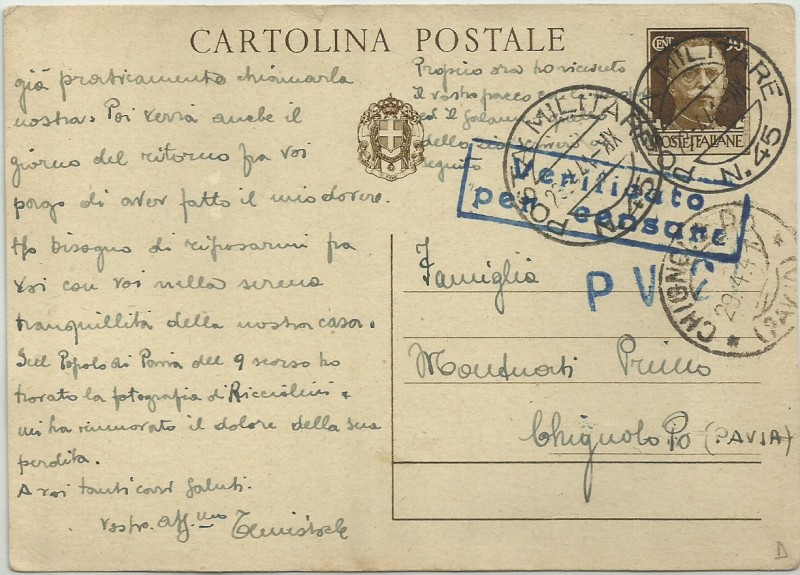 CARTOLINA POSTALE
già praticamente chiamarla
nostra. Poi verrà anche il
giorno del ritorno fra voi
pago di aver fatto il mio dovere.
Ho bisogno di riposarmi fra
voi con voi nella serena
tranquillità della nostra casa.
Sul Popolo di Pavia del 9 scorso ho
trovato la fotografia di Ricciolini e
mi ha rinnovato il dolore della sua
perdita.
A voi tanti cari saluti.
vostro aff.mo Temistocle
Proprio ora ho ricevuto
il vostro pacco
ed il salame
seguito
CENT 30
POSTE ITALIANE
POSTA MILITARE
N. 45
POSTA MILITARE
N. 45
Verificato
per censura
P V C
CHIGNOLO PO
29.4.41
(PAVIA)
Famiglia
Montuati Primo
Chignolo Po (PAVIA)